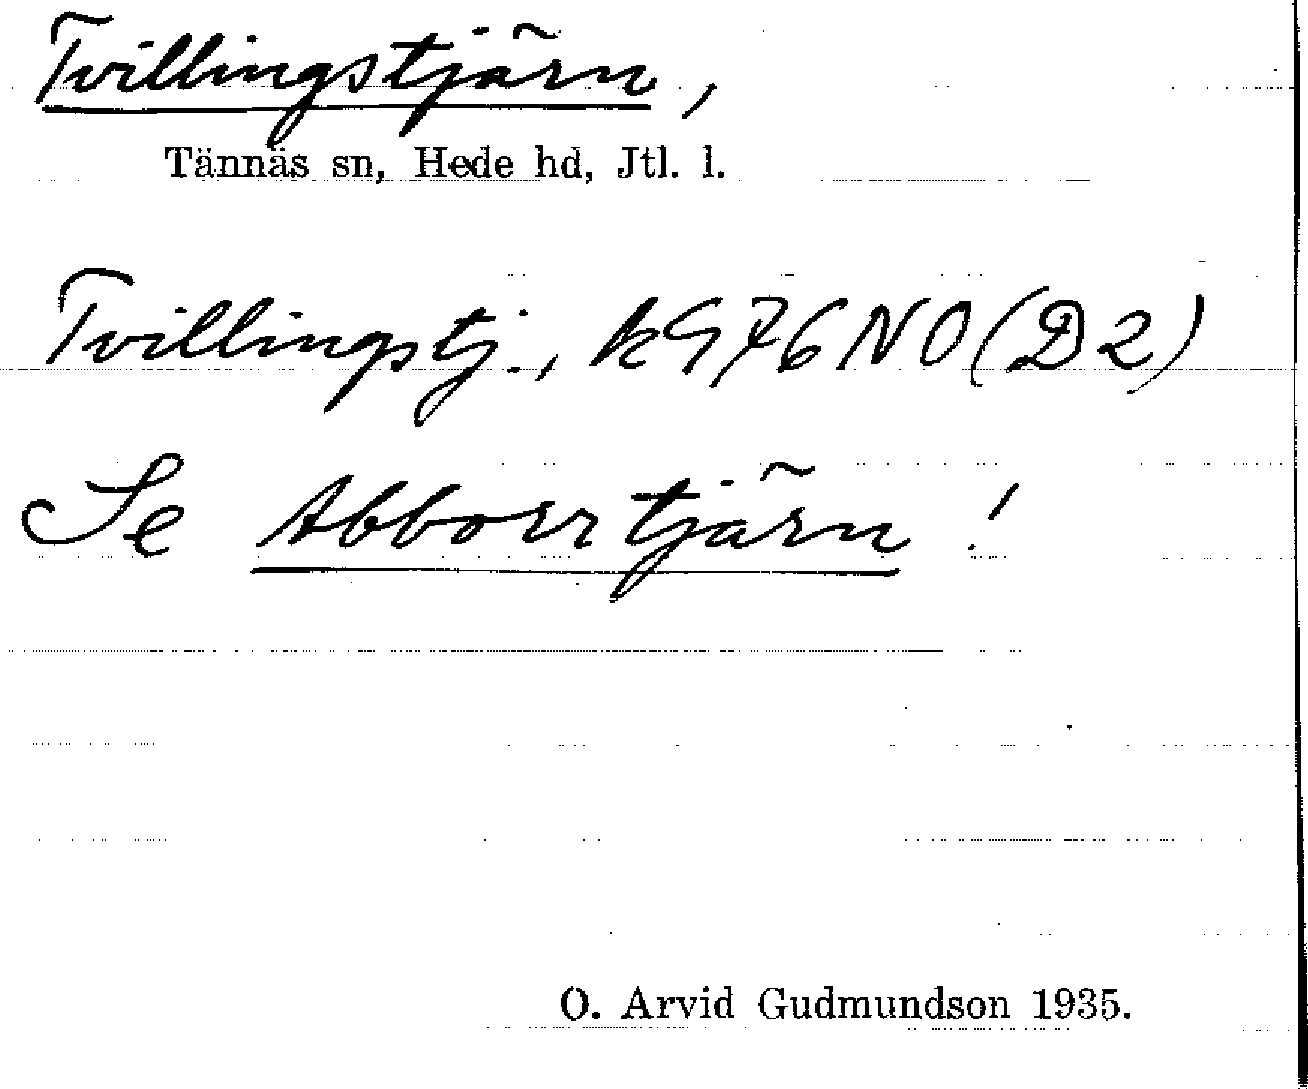 Tvillingstjärn,
Tännäs sn, Hede hd, Jtl. l.
Tvillingstj., k976NO(D2)
Se Abborrtjärn!
O. Arvid Gudmundson 1935.